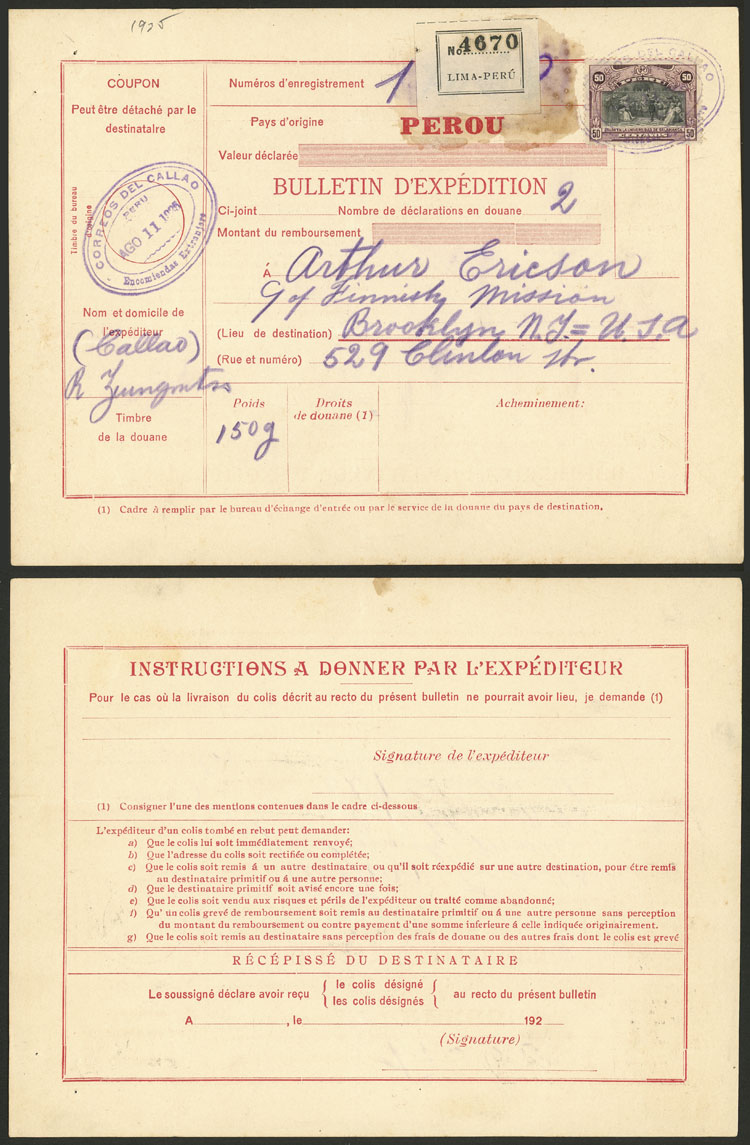 1925
COUPON
Peut être détaché par le
destinataire
Timbre du bureau
d'origine
CORREOS DEL CALLAO
PERU
AGO 11 1925
Encomiendas Extranjeras
Nom et domicile de
l'expéditeur
(Callao)
R
Timbre
de la douane
Numéros d'enregistrement
No. 4670
LIMA-PERÚ
50 50
50 CENTAVOS 50
DEL CALLAO
Pays d'origine PEROU
Valeur déclarée
BULLETIN D'EXPÉDITION
Ci-joint Nombre de déclarations en douane 2
Montant du remboursement
Á Arthur Ericson
% of Finnish Mission
(Lieu de destination) Brooklyn N.Y. = U.S.A
(Rue et numéro) 529 Clinton Str.
Poids Droits de douane (1) Acheminement:
150g
(1) Cadre à remplir par le bureau d'échange d'entrée ou par le service de la douane du pays de destination.
INSTRUCTIONS A DONNER PAR L'EXPÉDITEUR
Pour le cas où la livraison du colis décrit au recto du présent bulletin ne pourrait avoir lieu, je demande (1)
Signature de l'expéditeur
(1) Consigner l'une des mentions contenues dans le cadre ci-dessous
L'expéditeur d'un colis tombé en rebut peut demander:
a) Que le colis lui soit immédiatement renvoyé;
b) Que l'adresse du colis soit rectifiée ou complétée;
c) Que le colis soit remis á un autre destinataire ou qu'il soit réexpédié sur une autre destination, pour être remis
au destinataire primitif ou á une autre personne;
d) Que le destinataire primitif soit avisé encore une fois;
e) Que le colis soit vendu aux risques et périls de l'expéditeur ou traité comme abandonné;
f) Qu' un colis grevé de remboursement soit remis au destinataire primitif ou á une autre personne sans perception
du montant du remboursement ou contre payement d'une somme inferieure á celle indiquée originairement.
g) Que le colis soit remis au destinataire sans perception des frais de douane ou des autres frais dont le colis est grevé
RÉCÉPISSÉ DU DESTINATAIRE
Le soussigné déclare avoir reçu { le colis désigné { au recto du présent bulletin
les colis désignés
A , le 192
(Signature)